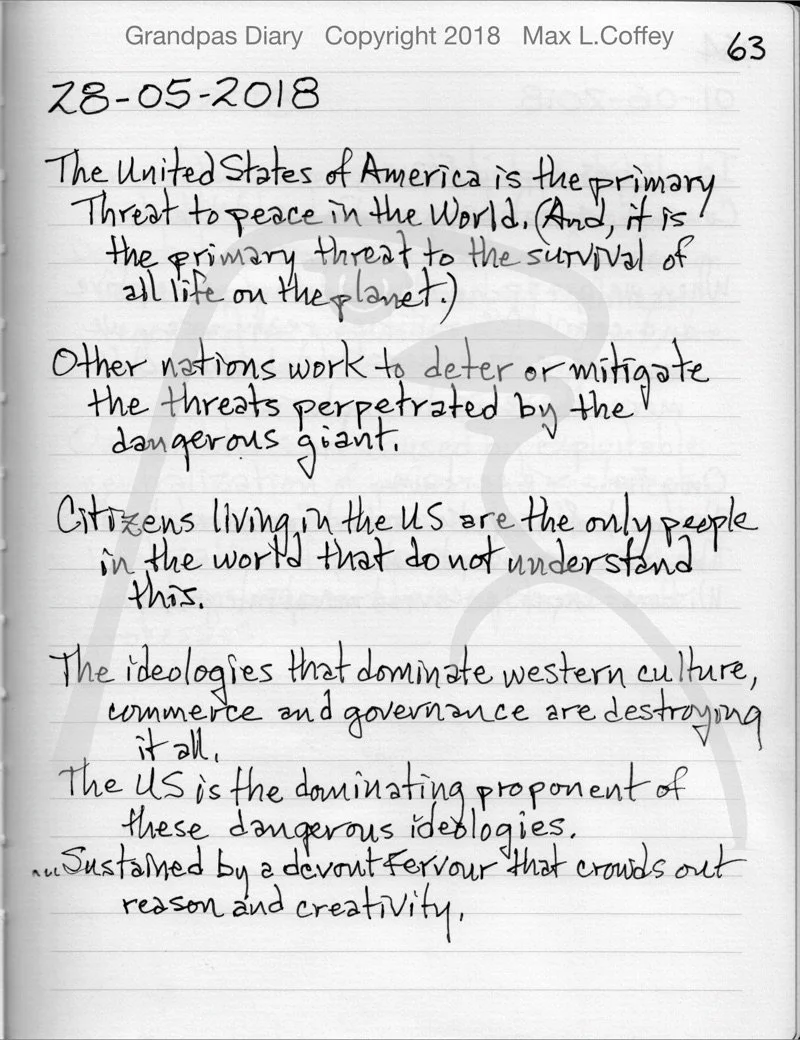 Grandpas Diary Copyright 2018 Max L.Coffey
63
28-05-2018
The United States of America is the primary
Threat to peace in the World. (And, it is
the primary threat to the survival of
all life on the planet.)
Other nations work to deter or mitigate
the threats perpetrated by the
dangerous giant.
Citizens living in the US are the only people
in the world that do not understand
this.
The ideologies that dominate western culture,
commerce and governance are destroying
it all.
The US is the dominating proponent of
these dangerous ideologies.
...Sustained by a devout fervour that crowds out
reason and creativity.